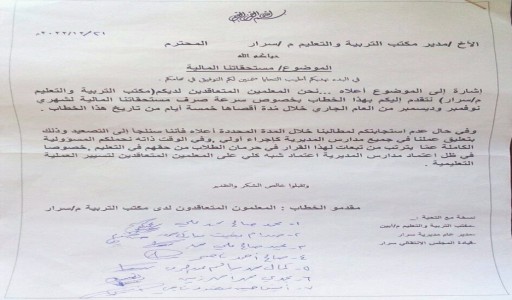 بسم الله الرحمن الرحيم
2022/12/21
الأخ /مدير مكتب التربية والتعليم م /سرار المحترم
حياكم الله
الموضوع/ مستحقاتنا المالية
في البدء نهديكم أطيب التحايا متمنين لكم التوفيق في مهامكم.
إشارة إلى الموضوع أعلاه ...نحن المعلمين المتعاقدين لديكم(مكتب التربية والتعليم
م/سرار) نتقدم إليكم بهذا الخطاب بخصوص سرعة صرف مستحقاتنا المالية لشهري
نوفمبر وديسمبر من العام الجاري خلال مدة أقصاها خمسة أيام من تاريخ هذا الخطاب .
وفي حال عدم استجابتكم لمطالبنا خلال المدة المحددة أعلاه فأننا سنلجأ إلى التصعيد وذلك
بتعليق عملنا في جميع مدارس المديرية كإجراء أولي ,وفي الوقت ذاته نحملكم المسؤولية
الكاملة عما يترتب من تبعات لهذا القرار في حرمان الطلاب من حقهم في التعليم ,خصوصا
في ظل اعتماد مدارس المديرية اعتماد شبه كلي على المعلمين المتعاقدين لتسيير العملية
التعليمية .
وتقبلوا خالص الشكر والتقدير
مقدمو الخطاب : المعلمون المتعاقدون لدى مكتب التربية م/سرار
نسخة مع التحية :
-مكتب التربية والتعليم م/أبين
-مدير عام مديرية سرار
-قيادة المجلس الانتقالي سرار
١- محمد صالح
٢-
٣-
٤- صالح أحمد
٥-
٦-
٧-